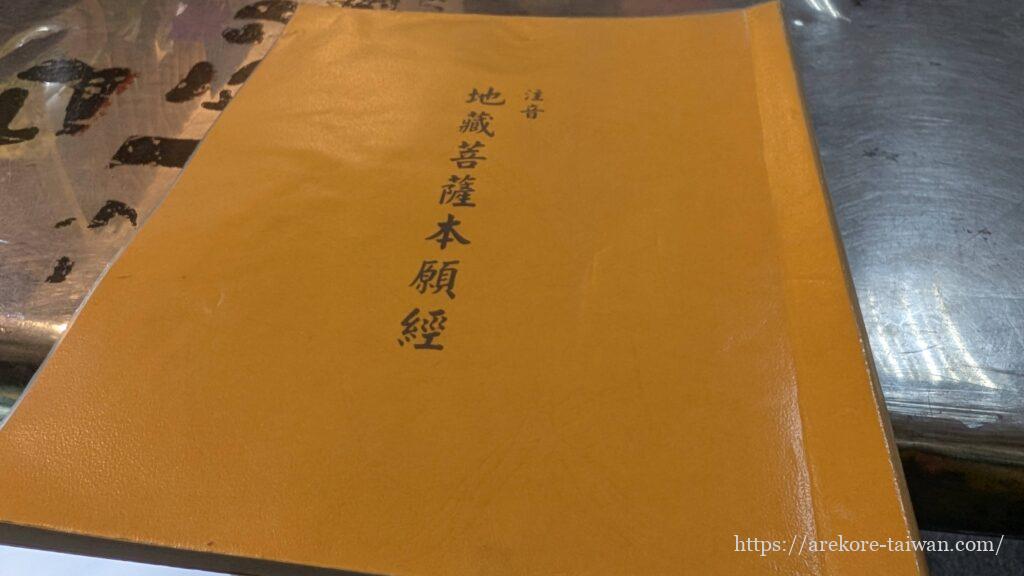 注音
地藏菩薩本願經
https://arekore-taiwan.com/